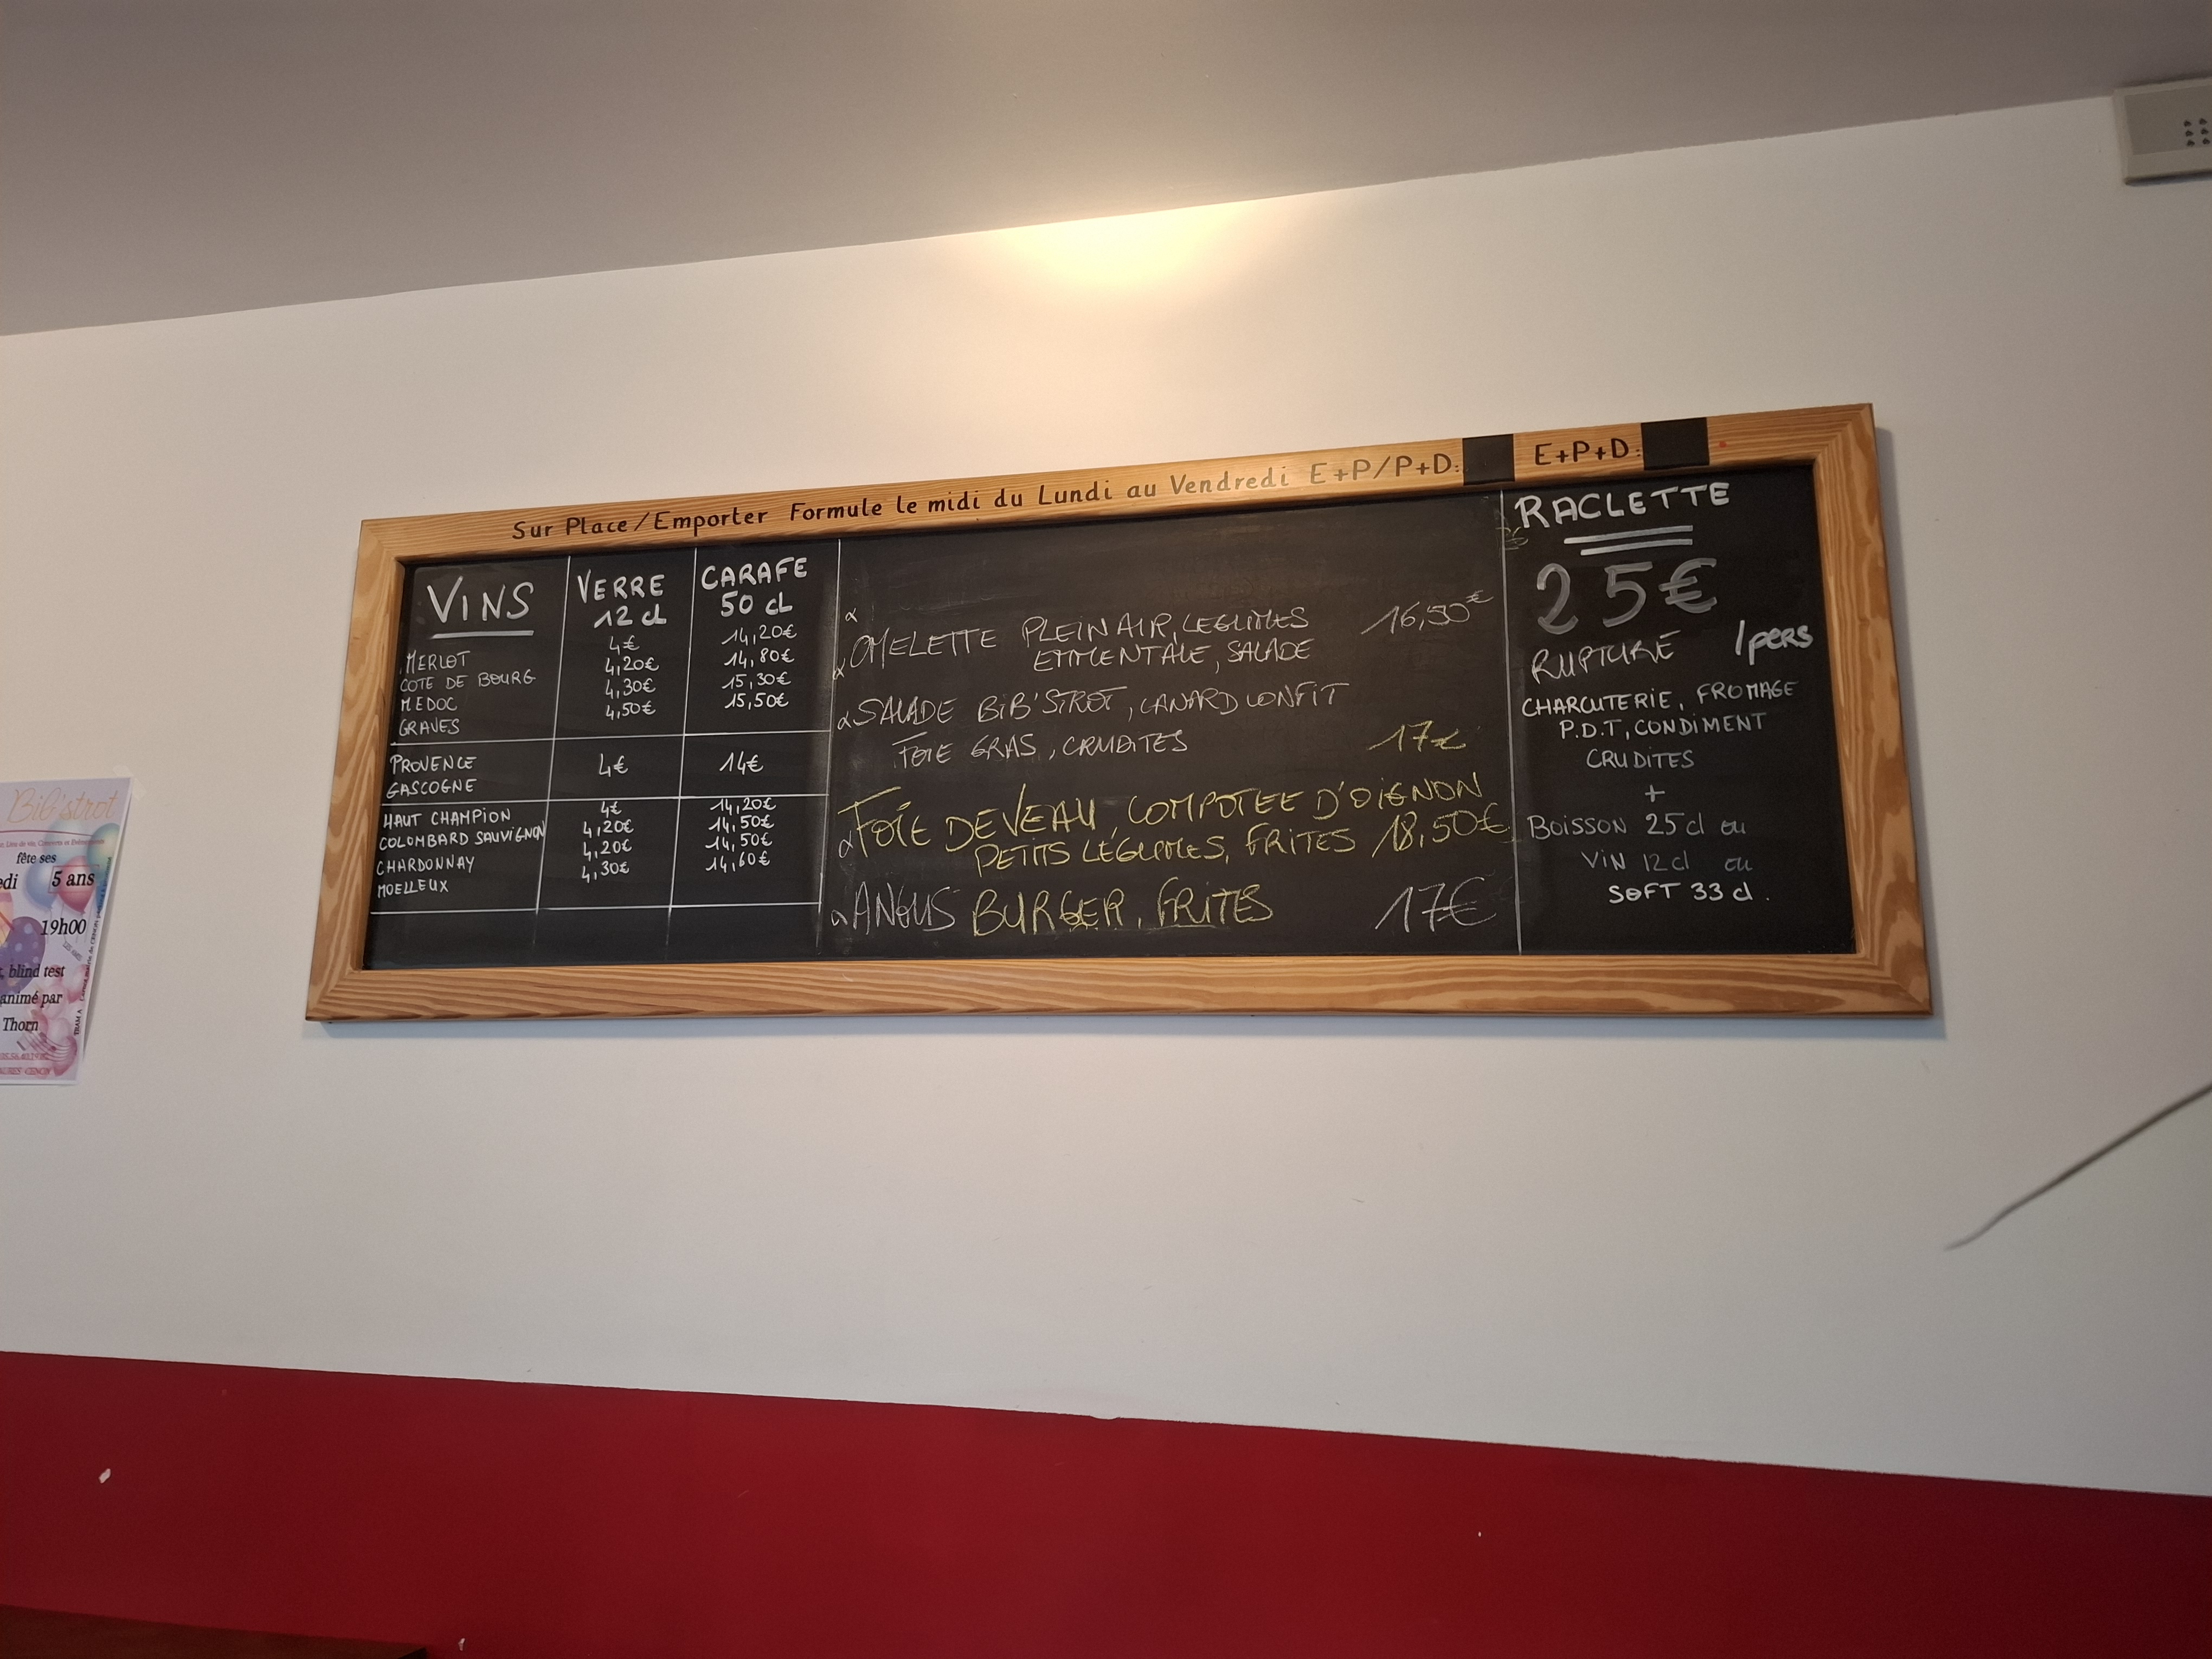 Sur Place/Emporter Formule le midi du Lundi au Vendredi E+P/P+D: E+P+D:
VINS
VERRE
12 cl
CARAFE
50 cL
MERLOT 4€ 14,20€
COTE DE BOURG 4,20€ 14,80€
MEDOC 4,30€ 15,30€
GRAVES 4,50€ 15,50€
PROVENCE 4€ 14€
GASCOGNE
HAUT CHAMPION 4€ 14,20€
COLOMBARD SAUVIGNON 4,20€ 14,50€
CHARDONNAY 4,20€ 14,50€
MOELLEUX 4,30€ 14,60€
OMELETTE PLEIN AIR, LEGUMES 16,50€
EMMENTALE, SALADE
SALADE BIB'STROT, CANARD CONFIT
FOIE GRAS, CRUDITES 17€
FOIE DE VEAU, COMPOTEE D'OIGNON
PETITS LÉGUMES, FRITES 18,50€
ANGUS BURGER, FRITES 17€
RACLETTE
25€
/pers
RUPTURE
CHARCUTERIE, FROMAGE
P.D.T, CONDIMENT
CRUDITES
+
BOISSON 25 cl ou
VIN 12 cl ou
SOFT 33 cl.
Bib'strot
fête ses
edi 5 ans
19h00
blind test
animé par
Thorn
CENON